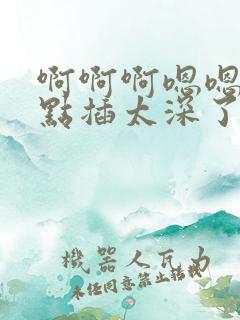 啊啊啊嗯嗯
點插太深了
機器人瓦力
未經同意禁止轉載